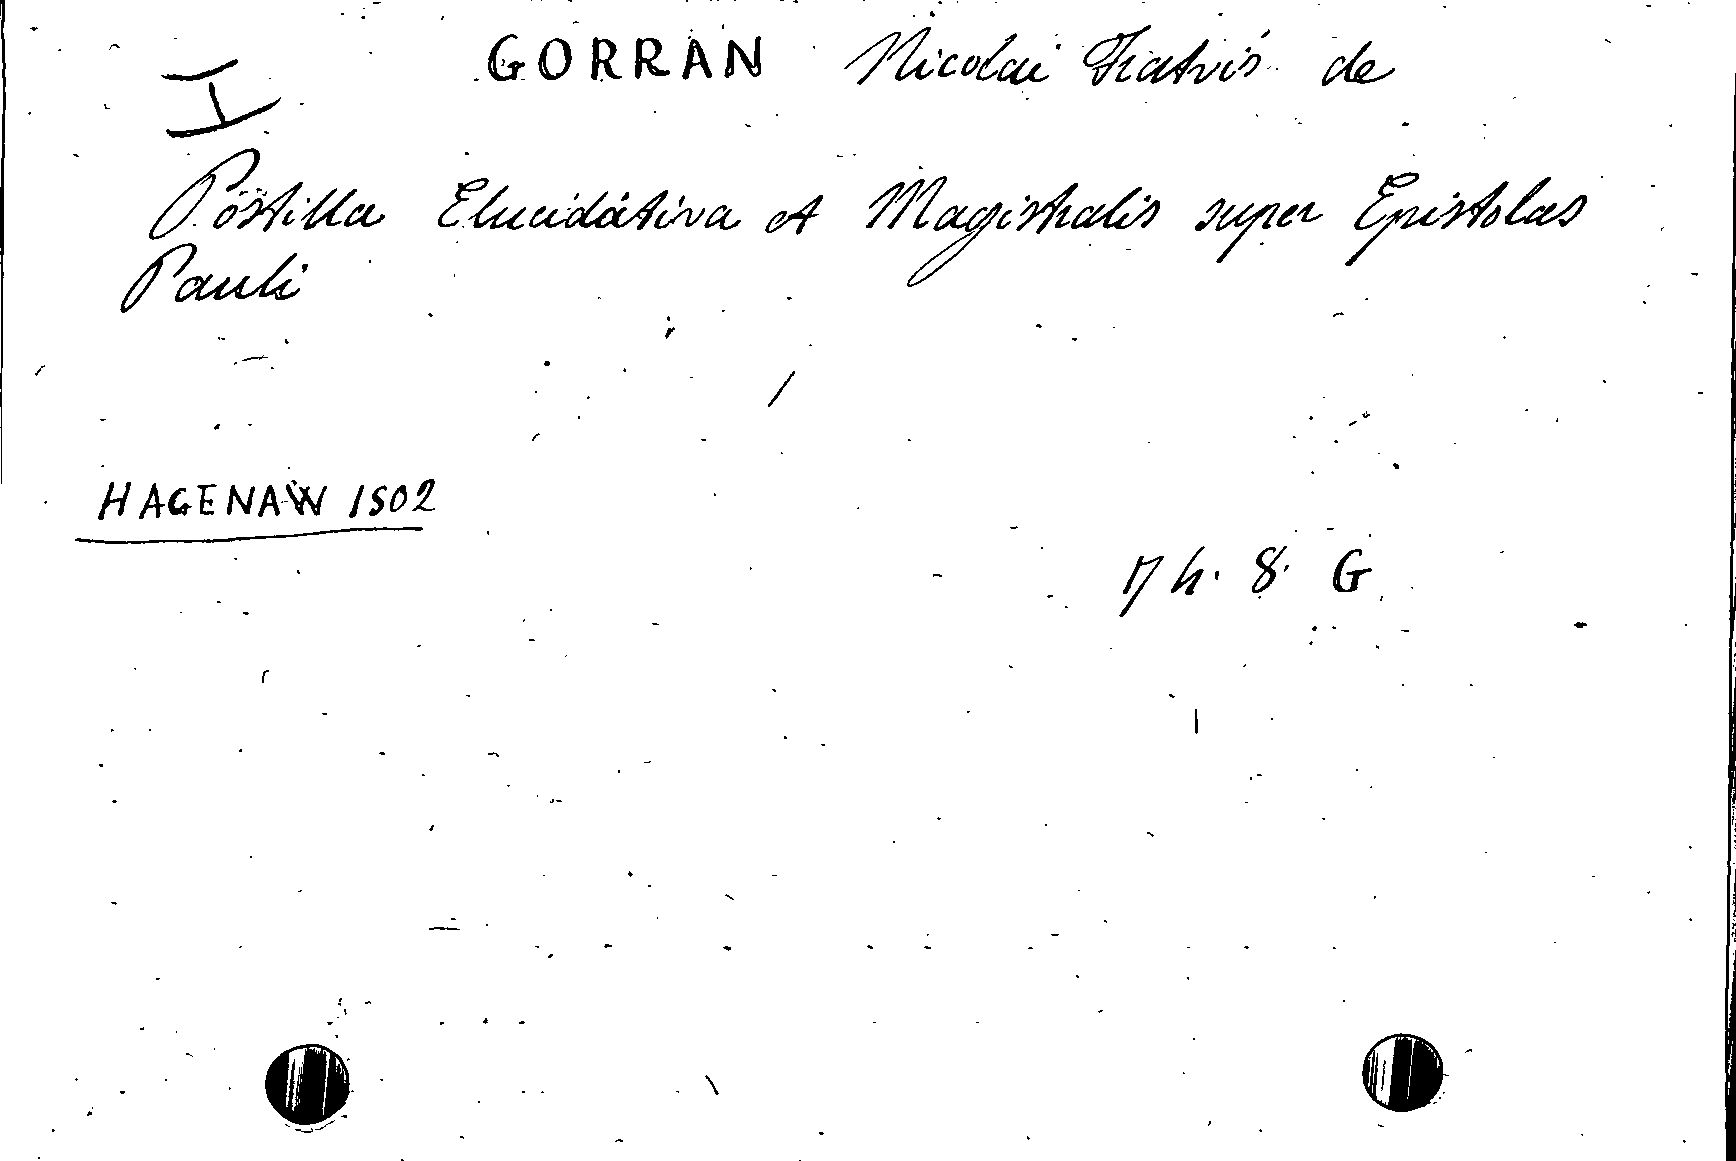 GORRAN Nicolai Fratris de
I
Postilla Elucidativa et Magistralis super Epistolas
Pauli
HAGENAW 1502
17 h. 8. G